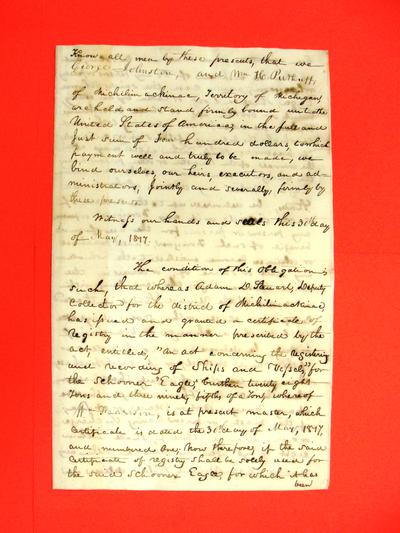 Know all men by these presents, that we
George Johnston, and Wm H. Puthuff,
of Michilimackinac, Territory of Michigan,
are held and stand firmly bound unto the
United States of America, in the full and
just sum of four hundred dollars, to which
payment well and truly to be made, we
bind ourselves, our heirs, executors, and ad-
ministrators, jointly and severally, firmly by
these presents.
Witness our hands and seals this 31st day
of May, 1817.
The condition of this Obligation is
such, that whereas Adam D. Steuart, Deputy
Collector for the district of Michilimackinac,
has issued and granted a certificate of
registry in the manner prescribed by the
act, entitled, "An act concerning the registering
and recording of Ships and Vessels," for
the Schooner "Eagle," burthen twenty eight
Tons and three ninety fifths of a Ton, whereof
Harrison, is at present master, which
Certificate is dated the 31st day of May, 1817,
and numbered One; Now therefore, if the said
Certificate of registry shall be solely used for
the said Schooner Eagle, for which it has
been